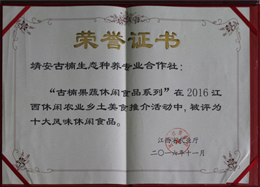 荣誉证书
靖安古楠生态种养专业合作社:
“古楠果蔬休闲食品系列”在2016江
西休闲农业乡土美食推介活动中,被评为
十大风味休闲食品。
江西省 厅
二〇一六年十一月